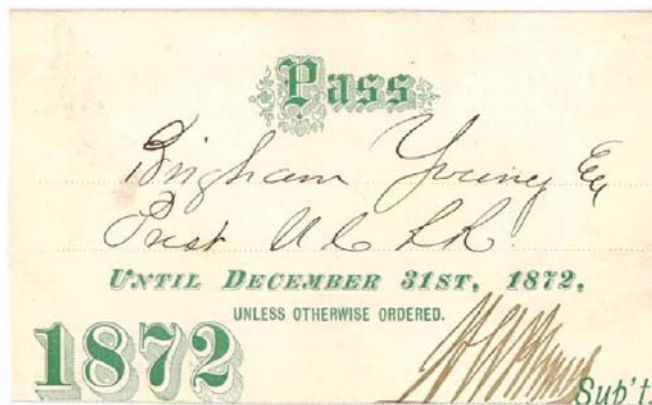 Pass
Brigham Young Esq
Prest U C RR.
UNTIL DECEMBER 31ST, 1872,
UNLESS OTHERWISE ORDERED.
1872
Sup't.